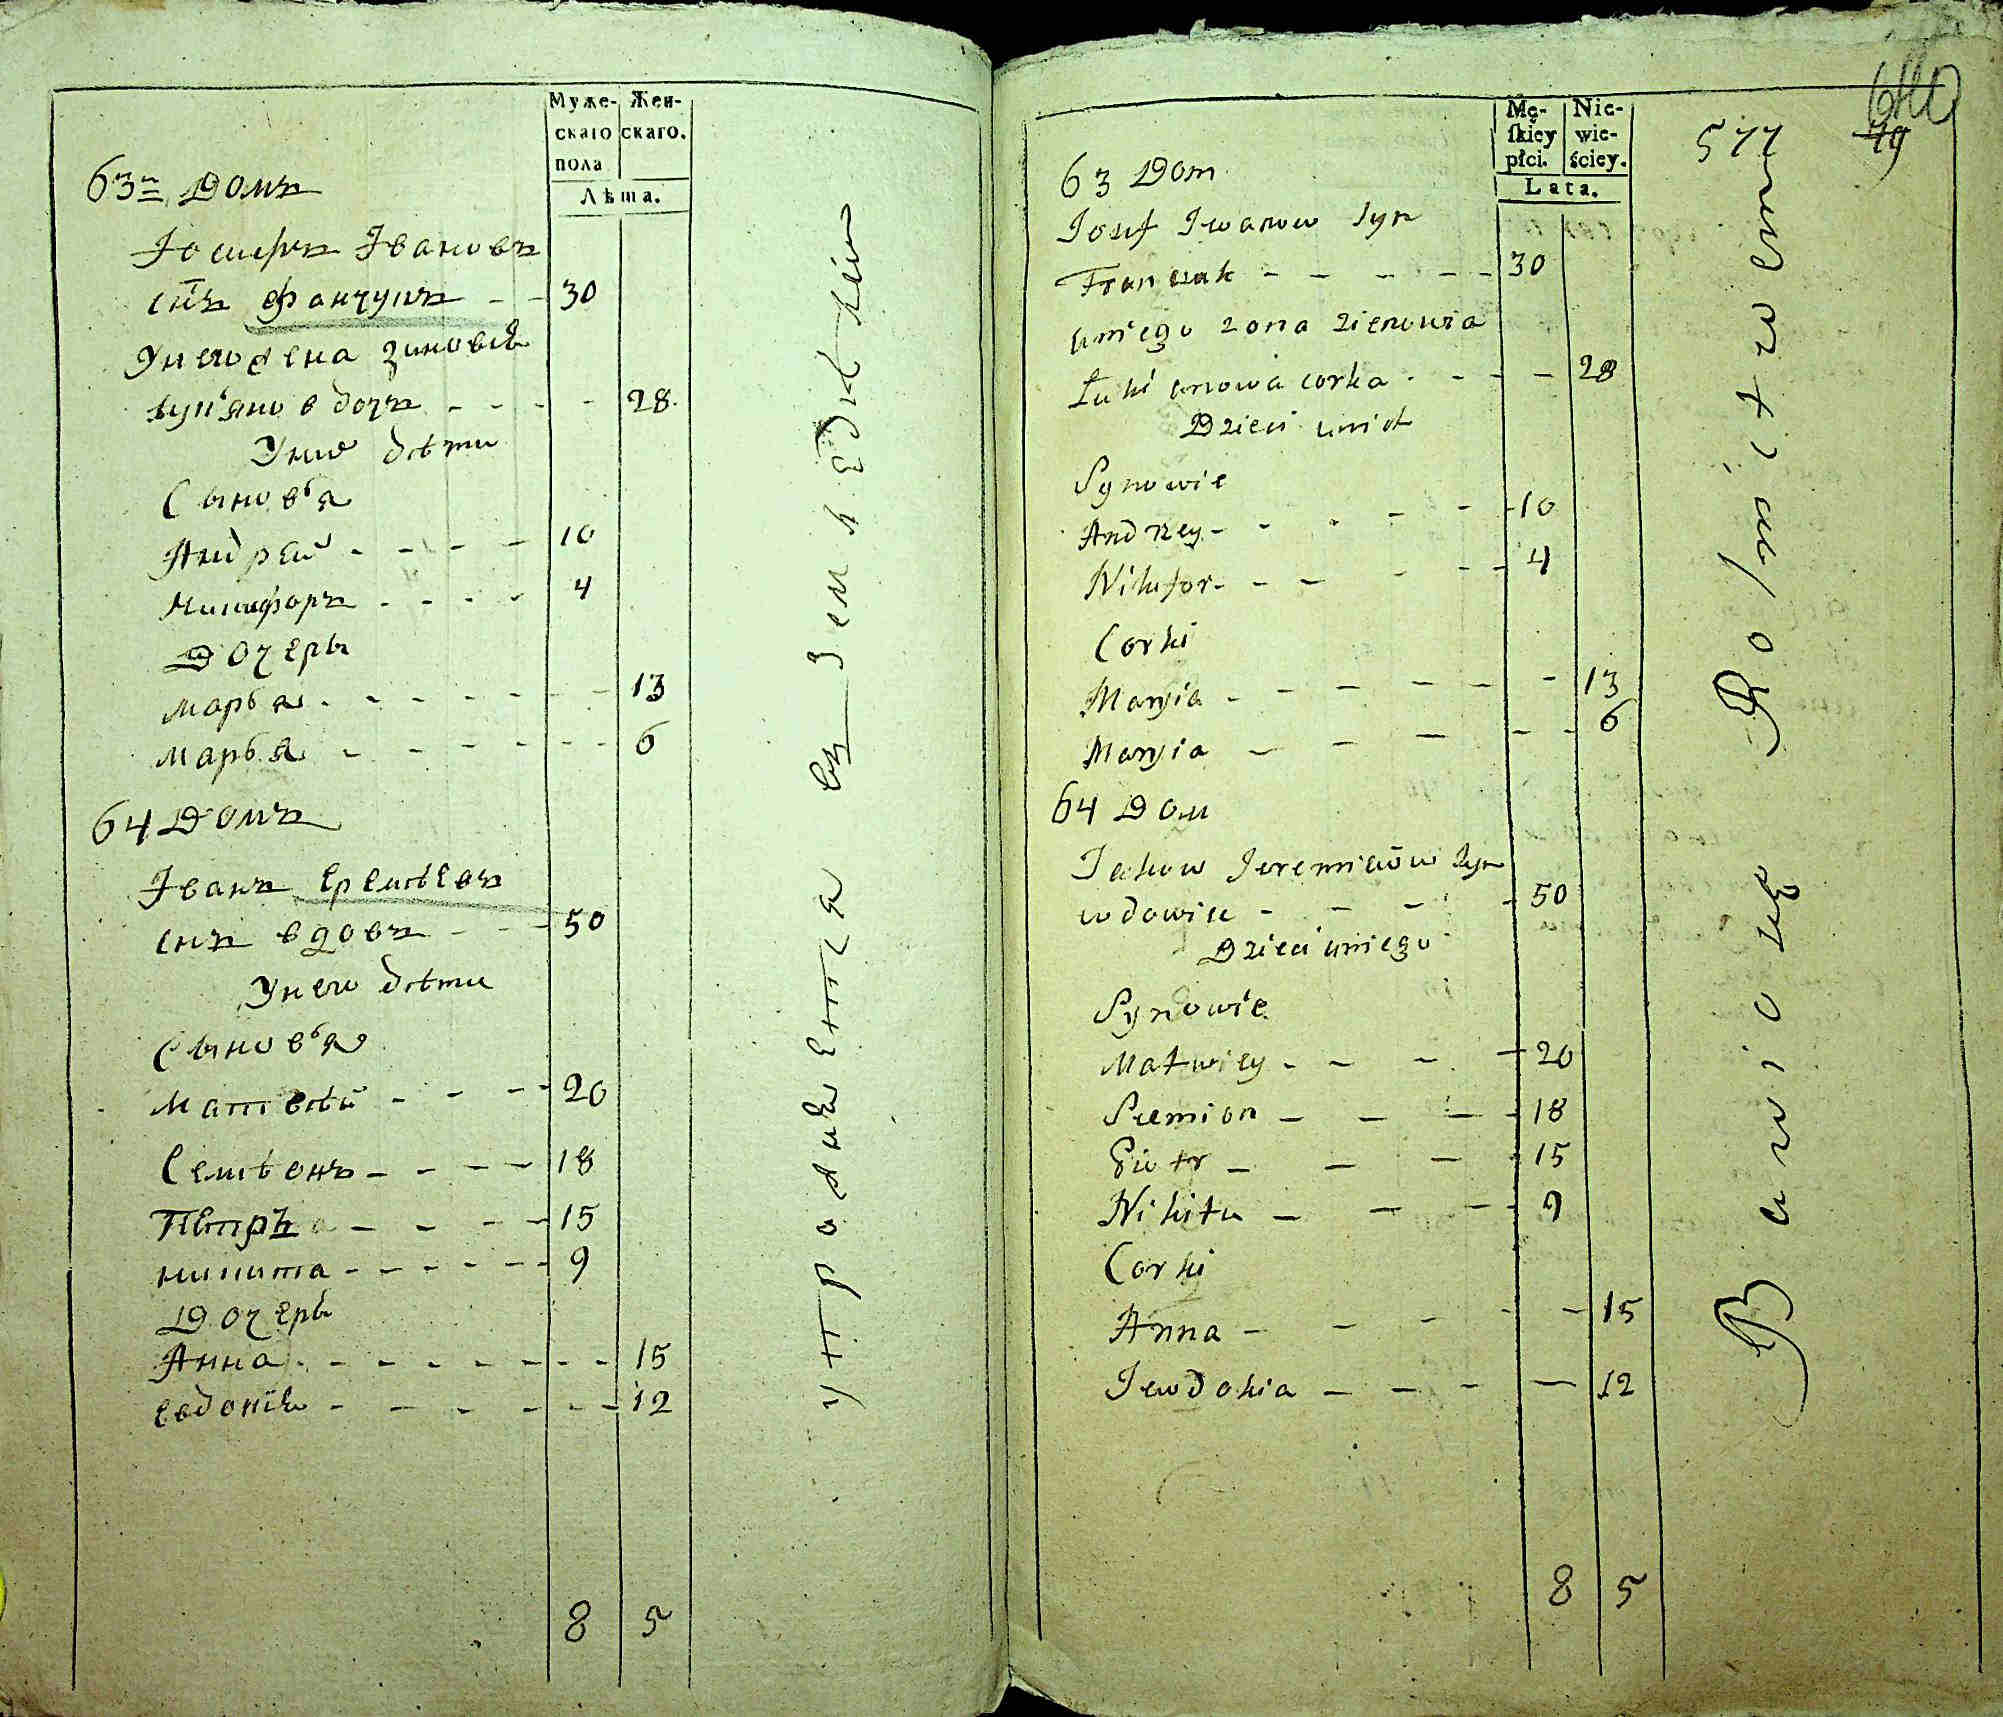 Муже- Жен-
скаго скаго.
пола
Лѣта.
63ъ Домъ
Іосифъ Івановъ
снъ Фанчукъ - - 30
У него жена Зиновія
Лукʼянова дочъ - - - - 28
У них дѣти
Сыновья
Андрей - - - - 10
Никифоръ - - - - 4
Дочеры
Марья - - - - - - - 13
Марья - - - - - - - 6
64 Домъ
Іванъ Еремѣевъ
снъ вдовъ - - - 50
У него дѣти
Сыновья
Матвѣй - - - - 20
Семѣонъ - - - - 18
Петръ - - - - 15
Никита - - - - - - 9
Дочеры
Анна - - - - - - - - 15
Евдокія - - - - - - - 12
8 5
упражняется въ Земледѣліи
640
577 79
Mę- Nie-
ſkiey wie-
płci. ściey.
Lata.
63 Dom
Jozef Iwanow Syn
Franczuk - - - - - 30
u niego zona Zienowia
Łukianowa corka - - - - 28
Dzieci u nich
Synowie
Andrzey - - - - - - 10
Nikifor - - - - - - 4
Corki
Maryia - - - - - - - 13
Maryia - - - - - 6
64 Dom
Jakow Jeremieiow Syn
wdowiec - - - - 50
Dzieci u niego
Synowie
Matwiey - - - - 20
Siemion - - - - 18
Piotr - - - - 15
Nikita - - - - 9
Corki
Anna - - - - - - 15
Jewdokia - - - - 12
8 5
Bawio się Rolnictwem